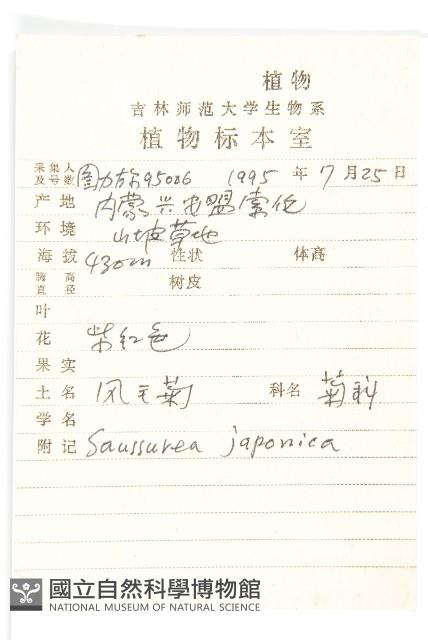 植物
吉林师范大学生物系
植物标本室
采集人及号数 图力古尔95086 1995 年 7 月 25 日
产地 内蒙兴安盟索伦
环境 山坡草地
海拔 430m 性状 体高
胸高直径 树皮
叶
花 紫红色
果实
土名 风毛菊 科名 菊科
学名
附记 Saussurea japonica
國立自然科學博物館
NATIONAL MUSEUM OF NATURAL SCIENCE